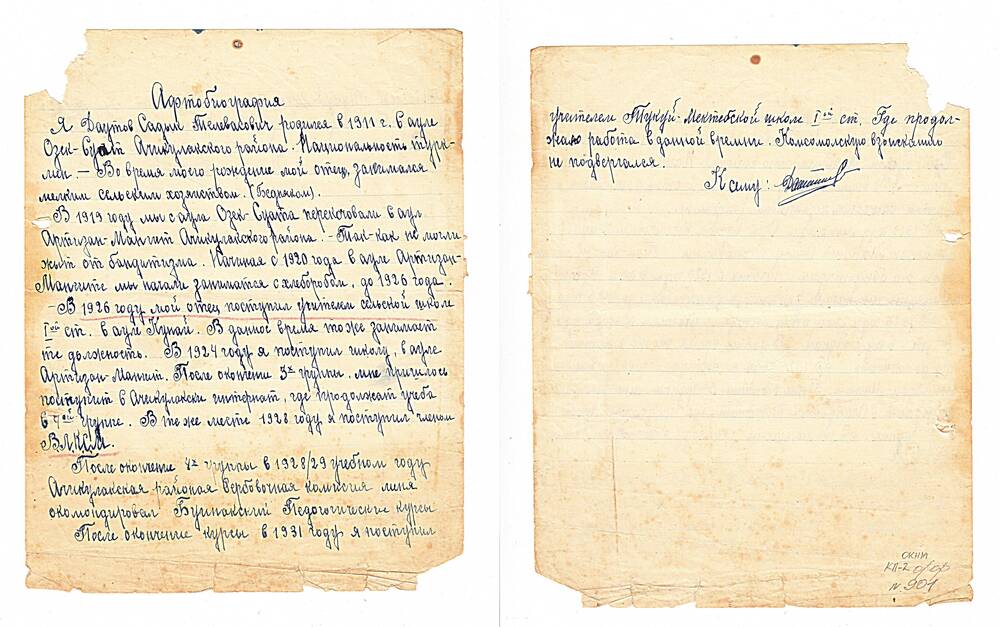 Афтобиография
Я Даутов Садым Телевасович родился в 1911 г. в ауле
Озек-Суат Ачикулакского района. Национальность турк-
мен. – Во время моего рождение мой отец, занимался
мелким сельским хозяйством. (Бедняком).
В 1919 году мы с аула Озек-Суата перекочевали в аул
Артизан-Мангит Ачикулакского района. – Так-как не могли
жит от бандитизма. Начиная с 1920 года в ауле Артизан-
Мангите мы начали заниматся с хлеборобом, до 1926 года.
– В 1926 году мой отец поступил учителем сельской школе
I ой ст. в ауле Кунай. В данное время тоже занимает
те должность. В 1924 году я поступил школу, в ауле
Артизан-Мангит. После окончение 3х группы, мне пришлось
поступит в Ачикулакски интернат, где продолжат учеба
в 4 ой группе. В те же месте 1928 году я поступил членом
ВЛКСМ.
После окончение 4х группы в 1928/29 учебном году
Ачикулакская районая вербовочная комиссия меня
окомандировал Буйнакский Педогогические курсы
После окончение курсы в 1931 году я поступил
учителем Тукуй-Мектебской школе I ой ст. Где продол-
жаю работа в данной времне. Комсомолскую взысканию
не подвергался.
К сему:
ОКНМ
КП-2
N. 901